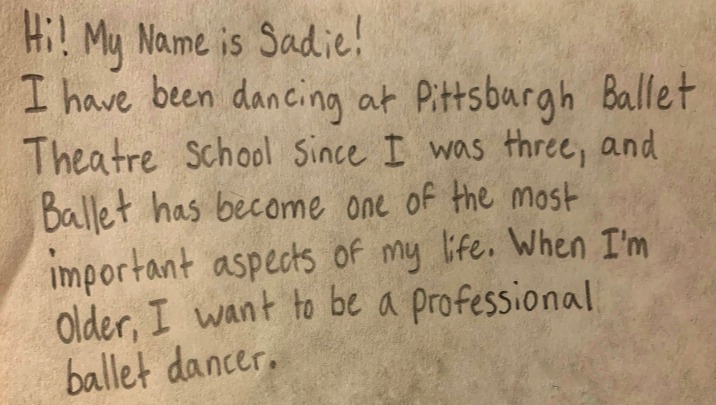 Hi! My Name is Sadie!
I have been dancing at Pittsburgh Ballet
Theatre School Since I was three, and
Ballet has become one of the most
important aspects of my life. When I'm
Older, I want to be a professional
ballet dancer.